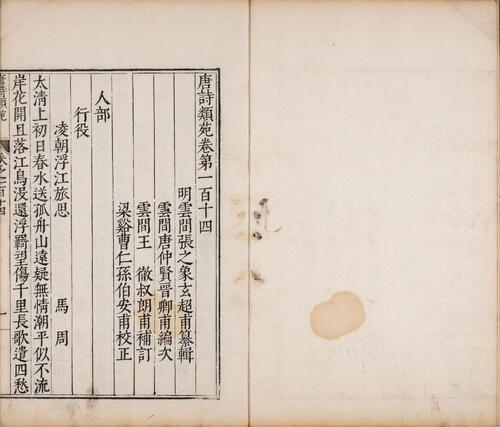 唐詩類苑卷第一百十四
明雲間張之象玄超甫纂輯
雲間唐仲賢晉卿甫編次
雲間王　徹叔朗甫補訂
梁谿曹仁孫伯安甫校正
人部
行役
凌朝浮江旅思　馬周
太清上初日春水送孤舟山遠疑無情潮平似不流
岸花開且落江鳥沒還浮羇望傷千里長歌遣四愁
唐詩類苑　卷之一百十四　一